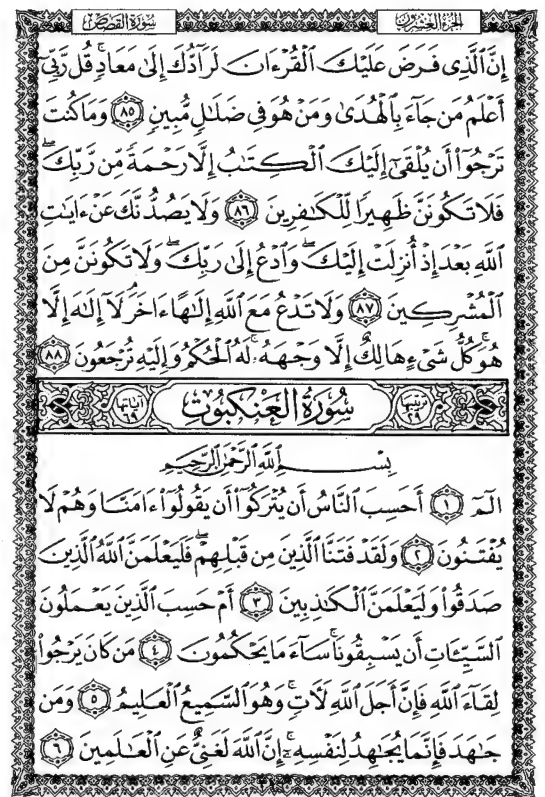 سُورَةُ القَصَصِ
الجُزءُ العِشرُونَ
إِنَّ ٱلَّذِى فَرَضَ عَلَيْكَ ٱلْقُرْءَانَ لَرَآدُّكَ إِلَىٰ مَعَادٍۚ قُل رَّبِّىٓ
أَعْلَمُ مَن جَآءَ بِٱلْهُدَىٰ وَمَنْ هُوَ فِى ضَلَٰلٍ مُّبِينٍ ٨٥ وَمَا كُنتَ
تَرْجُوٓا۟ أَن يُلْقَىٰٓ إِلَيْكَ ٱلْكِتَٰبُ إِلَّا رَحْمَةً مِّن رَّبِّكَۖ
فَلَا تَكُونَنَّ ظَهِيرًا لِّلْكَٰفِرِينَ ٨٦ وَلَا يَصُدُّنَّكَ عَنْ ءَايَٰتِ
ٱللَّهِ بَعْدَ إِذْ أُنزِلَتْ إِلَيْكَۖ وَٱدْعُ إِلَىٰ رَبِّكَۖ وَلَا تَكُونَنَّ مِنَ
ٱلْمُشْرِكِينَ ٨٧ وَلَا تَدْعُ مَعَ ٱللَّهِ إِلَٰهًا ءَاخَرَۘ لَآ إِلَٰهَ إِلَّا
هُوَۚ كُلُّ شَىْءٍ هَالِكٌ إِلَّا وَجْهَهُۥۚ لَهُ ٱلْحُكْمُ وَإِلَيْهِ تُرْجَعُونَ ٨٨
ترتيبها ٢٩ سُورَةُ العَنكبُوتِ آياتها ٦٩
بِسْمِ ٱللَّهِ ٱلرَّحْمَٰنِ ٱلرَّحِيمِ
الٓمٓ ١ أَحَسِبَ ٱلنَّاسُ أَن يُتْرَكُوٓا۟ أَن يَقُولُوٓا۟ ءَامَنَّا وَهُمْ لَا
يُفْتَنُونَ ٢ وَلَقَدْ فَتَنَّا ٱلَّذِينَ مِن قَبْلِهِمْۖ فَلَيَعْلَمَنَّ ٱللَّهُ ٱلَّذِينَ
صَدَقُوا۟ وَلَيَعْلَمَنَّ ٱلْكَٰذِبِينَ ٣ أَمْ حَسِبَ ٱلَّذِينَ يَعْمَلُونَ
ٱلسَّيِّـَٔاتِ أَن يَسْبِقُونَاۚ سَآءَ مَا يَحْكُمُونَ ٤ مَن كَانَ يَرْجُوا۟
لِقَآءَ ٱللَّهِ فَإِنَّ أَجَلَ ٱللَّهِ لَءَاتٍۚ وَهُوَ ٱلسَّمِيعُ ٱلْعَلِيمُ ٥ وَمَن
جَٰهَدَ فَإِنَّمَا يُجَٰهِدُ لِنَفْسِهِۦٓۚ إِنَّ ٱللَّهَ لَغَنِىٌّ عَنِ ٱلْعَٰلَمِينَ ٦